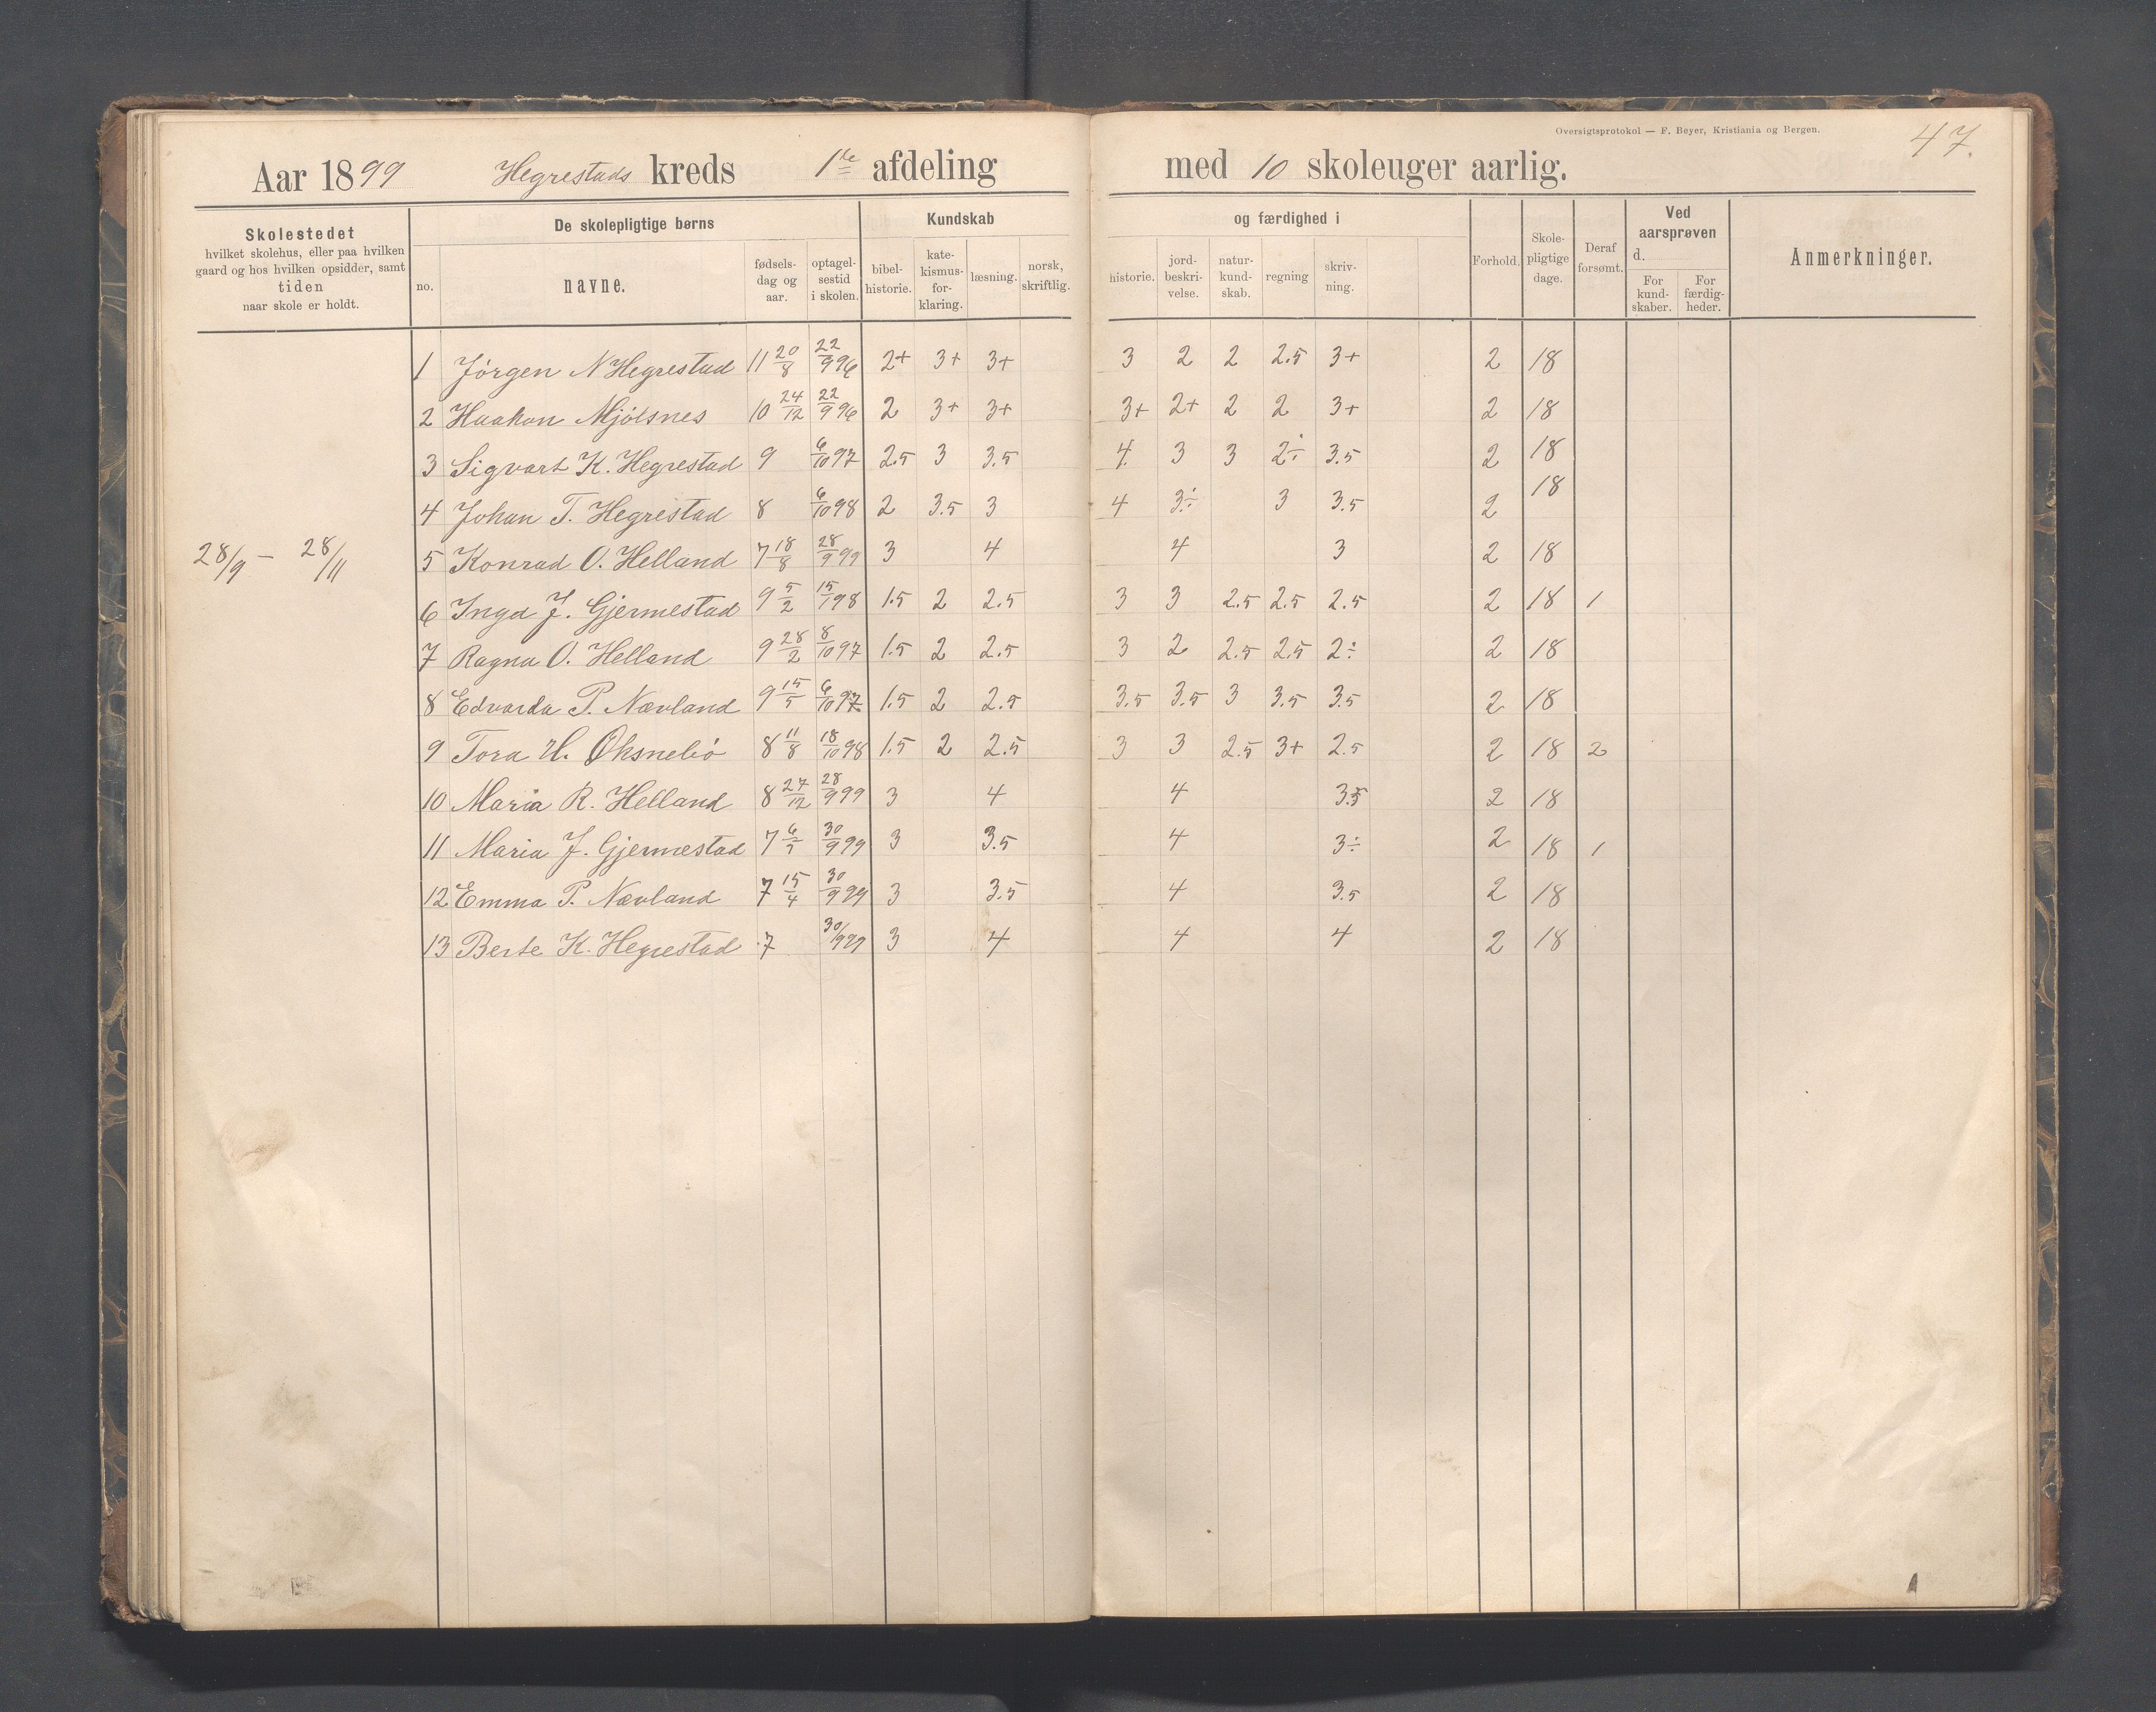 Oversigtsprotokol — F. Beyer, Kristiania og Bergen.
47.
Aar 1899 Hegrestads kreds 1ste afdeling med 10 skoleuger aarlig.
Skolestedet hvilket skolehus, eller paa hvilken gaard og hos hvilken opsidder, samt tiden naar skole er holdt.
De skolepligtige børns
no. navne. fødselsdag og aar. optagelsestid i skolen.
Kundskab og færdighed i
bibelhistorie. katekismusforklaring. læsning. norsk, skriftlig. historie. jordbeskrivelse. naturkundskab. regning skrivning.
Forhold. Skolepligtige dage. Deraf forsømt.
Ved aarsprøven d.
For kundskaber. For færdigheder.
Anmerkninger.
1 Jørgen N Hegrestad 11 20/8 22/9 96 2+ 3+ 3+ 3 2 2 2.5 3+ 2 18
2 Haakon Mjølsnes 10 24/12 22/9 96 2 3+ 3+ 3+ 2+ 2 2 3+ 2 18
3 Sigvart K. Hegrestad 9 6/10 97 2.5 3 3.5 4. 3 3 2÷ 3.5 2 18
4 Johan T. Hegrestad 8 6/10 98 2 3.5 3 4 3÷ 3 3.5 2 18
28/9 — 28/11
5 Konrad O. Helland 7 18/8 28/9 99 3 4 4 3 2 18
6 Inga J. Gjermestad 9 5/2 15/1 98 1.5 2 2.5 3 3 2.5 2.5 2.5 2 18 1
7 Ragna O. Helland 9 28/2 8/10 97 1.5 2 2.5 3 2 2.5 2.5 2÷ 2 18
8 Edvarda P. Nævland 9 15/5 6/10 97 1.5 2 2.5 3.5 3.5 3 3.5 3.5 2 18
9 Tora H. Øksnebø 8 11/8 18/10 98 1.5 2 2.5 3 3 2.5 3+ 2.5 2 18 2
10 Maria R. Helland 8 27/12 28/9 99 3 4 4 3.5 2 18
11 Maria J. Gjermestad 7 6/5 30/9 99 3 3.5 4 3÷ 2 18 1
12 Emma P. Nævland 7 15/4 30/9 99 3 3.5 4 3.5 2 18
13 Berte K. Hegrestad 7 30/9 99 3 4 4 4 2 18